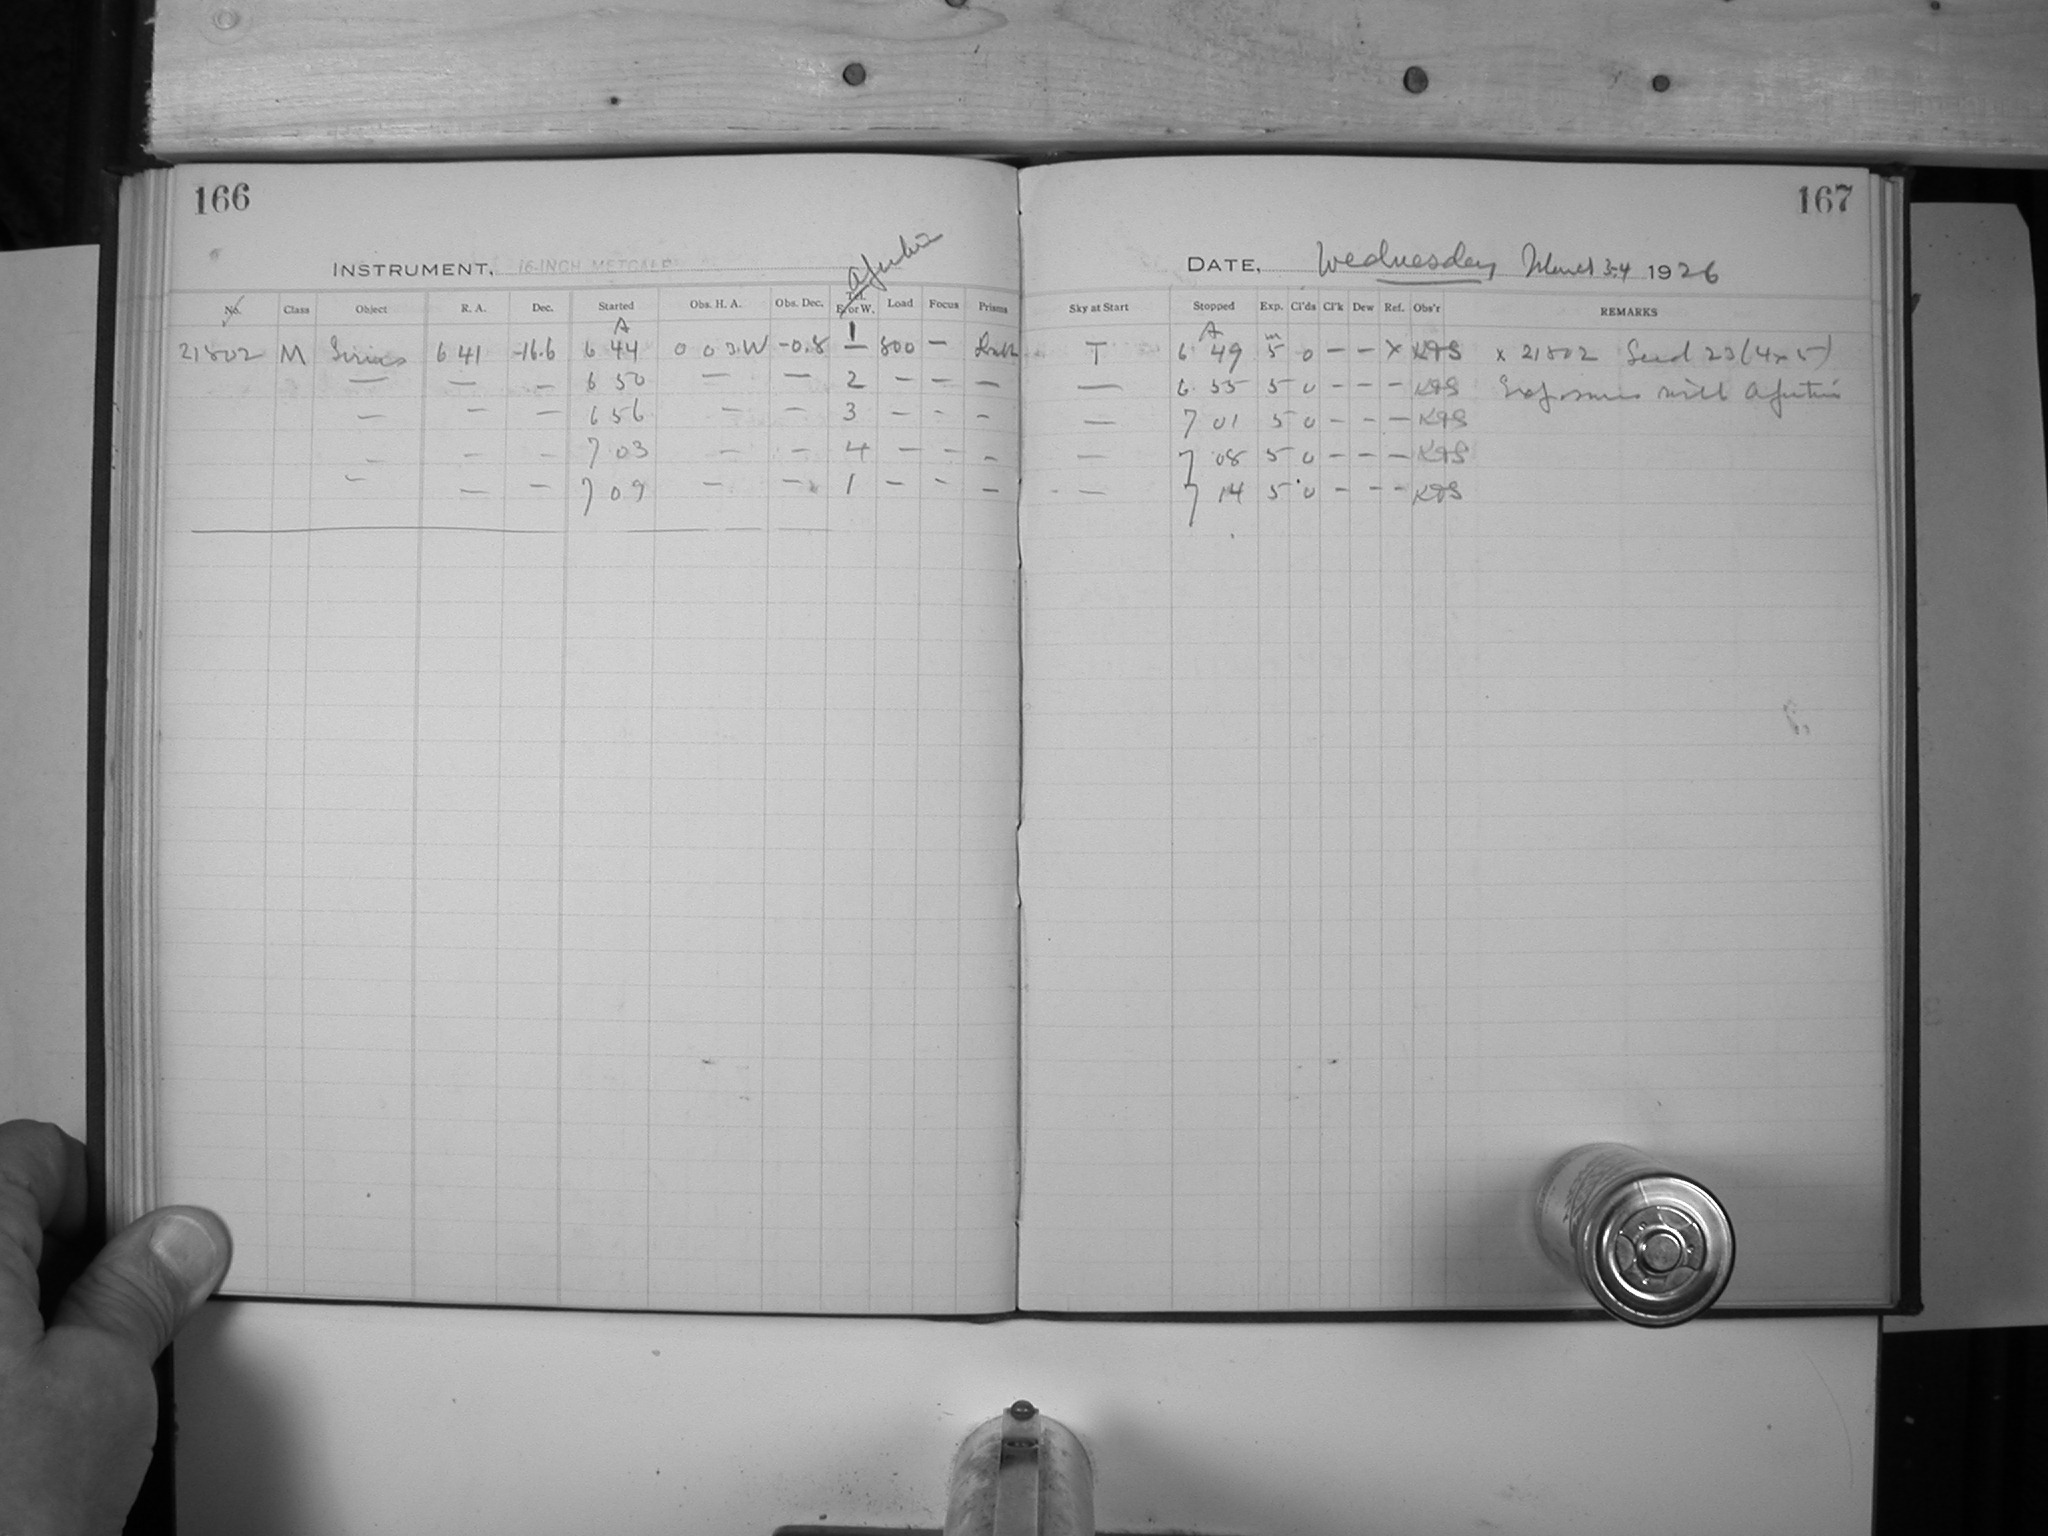 166
INSTRUMENT, 16-INCH METCALF
No. Class Object R. A. Dec. Started Obs. H. A. Obs. Dec. E. or W. Load Focus Prisms
21802 M Sirius 6 41 -16.6 6 44 0 03 W -0.8 1 800 —
— — — 6 50 — — 2 — — —
— — — 6 56 — — 3 — — —
— — — 7 03 — — 4 — — —
— — — 7 09 — — 1 — — —
167
DATE, Wednesday March 3-4 1926
Sky at Start Stopped Exp. Cl'ds Cl'k Dew Ref. Obs'r REMARKS
T 6 49 5 0 — — x x 21802 Seed 23 (4x5)
— 6 55 5 0 — — — Exposures with
— 7 01 5 0 — — —
— 7 08 5 0 — — —
— 7 14 5 0 — — —